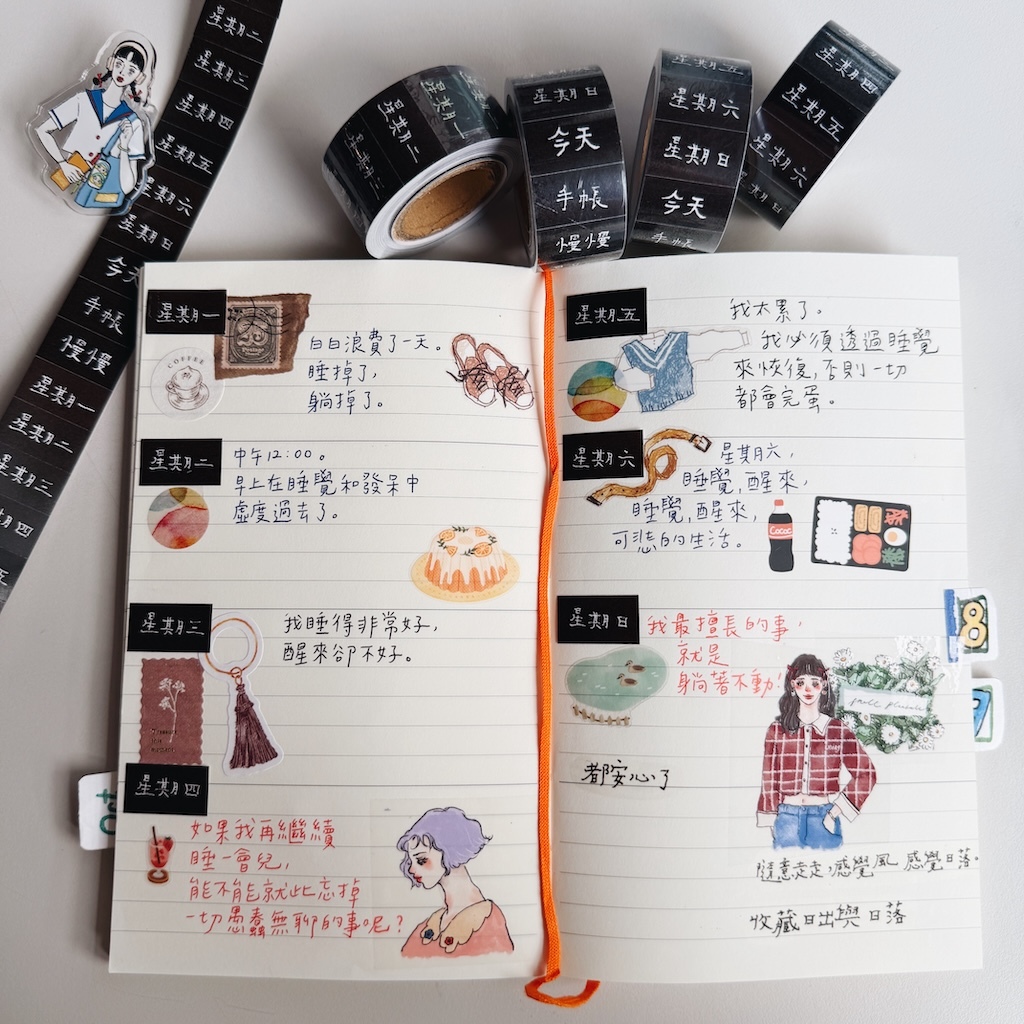 星期二
星期三
星期四
星期五
星期六
星期日
今天
手帳
慢慢
星期一
星期二
星期三
星期四
五
星期一
星期一
星期二
星期三
星期日
今天
手帳
慢慢
星期五
星期六
星期日
今天
手帳
星期四
星期五
星期六
星期日
星期一
COFFEE
白白浪費了一天。
睡掉了,
躺掉了。
星期二
中午12:00。
早上在睡覺和發呆中
虛度過去了。
星期三
我睡得非常好,
醒來卻不好。
星期四
如果我再繼續
睡一會兒,
能不能就此忘掉
一切愚蠢無聊的事呢?
星期五
我太累了。
我必須透過睡覺
來恢復,否則一切
都會完蛋。
星期六
星期六,
睡覺,醒來,
睡覺,醒來,
可悲的生活。
Cococ
星期日
我最擅長的事,
就是
躺著不動!
都安心了
隨意走走,感覺風 感覺日落。
收藏日出與日落
8